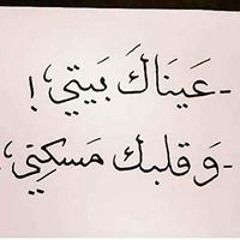 -عَينَاكَ بَيتي، !
-وَ قلبك مَسكني،